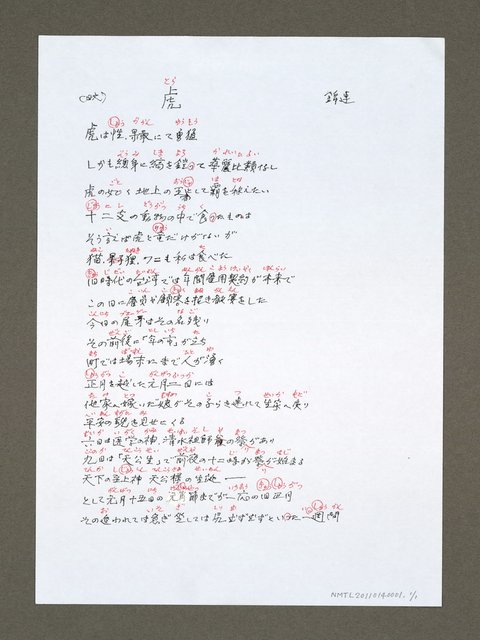 虎
錦連
虎は性、果敢にて勇猛
しかも総身に縞を鎧って華麗比類なし
虎の如く地上の王として覇を称えたい
十二支の動物の中で食ったものは
そう言えば虎と竜だけがないが
猫、獅子狸、ワニも私は食べた
旧時代の台湾では年間雇用契約が年末で
この日に雇員や顧客を招き散宴をした
今日の尾牙はその名残り
その前後に「年の市」が立ち
町では場末にまで人が湧く
正月を越した元月二日には
他家へ嫁いだ娘がその子らを連れて生家へ戻り
平安の貌を見せにくる
六日は医学の神、清水祖師爺の祭があり
九日は「天公生」で前夜の十二時から祭が始まる
天下の至上神 天公様の生誕——
として元月十五日の元宵節までが一応の旧正月
その追われては急ぎ 坐しては
といった一週間
NMTL20110140001. 1/1